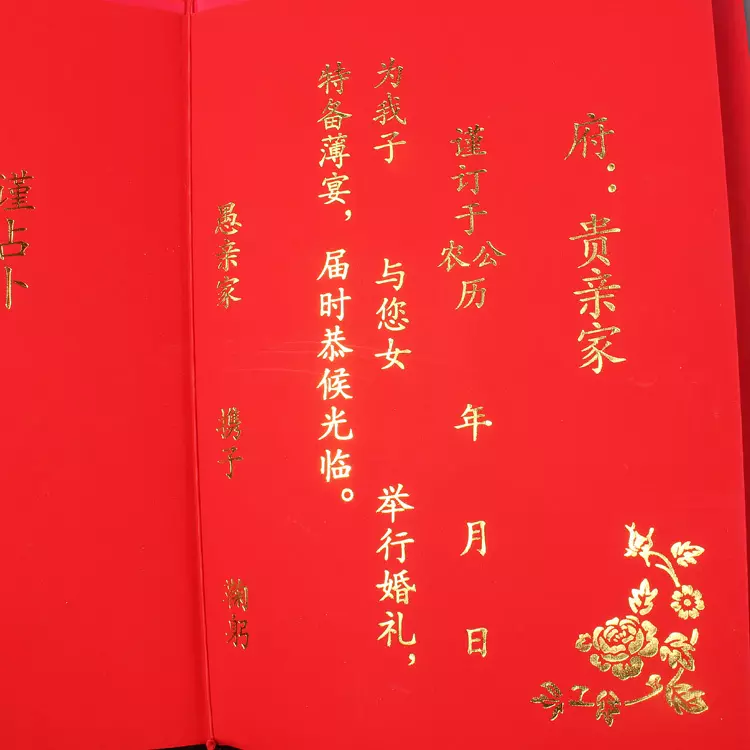 府：贵亲家
谨订于公历 年 月 日
农
为我子 与您女 举行婚礼，
特备薄宴，届时恭候光临。
愚亲家 携子 鞠躬
谨占卜